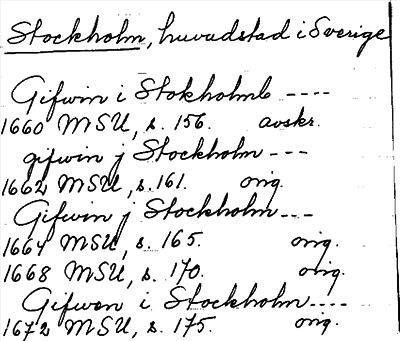 Stockholm, huvudstad i Sverige
Gifwin i Stokholmb ----
1660 MSU, s. 156. avskr.
gifwin j Stockholm ---
1662 MSU, s. 161. orig.
Gifwin j Stockholm ---
1664 MSU, s. 165. orig.
1668 MSU, s. 170. orig.
Gifwon i Stockholm ----
1672 MSU, s. 175. orig.